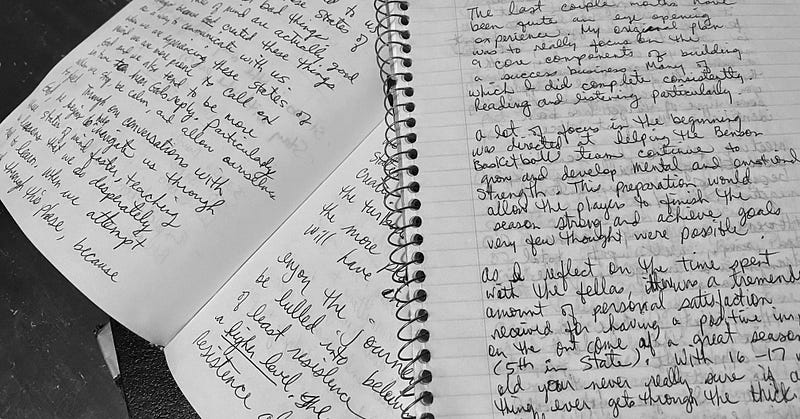 these States of
of mind are actually good
bad things.
could these things
a way to communicate with us -
when we are experiencing these states of
mind we are more prone to call on
God and we also tend to be more
in tune to
hear God's reply, particularly
when we try to be calm and allow ourselves
Through our conversations with
God, he begins to
thought us through
States of mind faster, teaching
lessons that we so desperately
to learn, when we attempt
through this phase, because
the more
will have
enjoy the journe
be lulled into believ
of least resistence
a higher level. The
resistence
The last couple months have
been quite an eye opening
experience. My original plan
was to really focus on the
9 core components of building
a success business. Many of
which I did complete consistently.
Reading and listening particularly.
a lot of focus in the beginning
was directed at helping the Benson
Basketball team continue to
grow and develop mental and emotional
Strength. This preparation would
allow the players to finish the
season strong and achieve goals
very few thought were possible.
as I reflect on the time spent
with the fellas, there was a tremend
amount of personal satisfaction
received for having a positive
on the outcome of a great season
(5th in State). With 16 -17
old you never really sure if a
thing ever gets through the thick